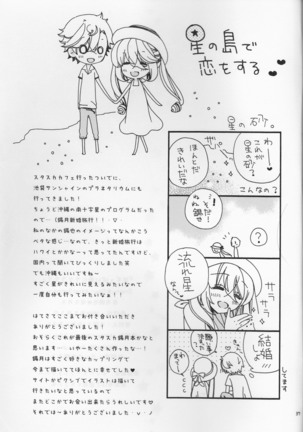 星の島で
恋をする♥
スタスカカフェ行ったついでに、
池袋サンシャインのプラネタリウムにも
行ってきました!
ちょうど沖縄の南十字星のプログラムだった
ので…(錫月新婚旅行!!…♡
わりとなかの錫也のイメージってなんかこう
ベタな感じ…なので、きっと新婚旅行は
ハワイとかかなーって思ってたんですけど、
ても沖縄もいいですねー
すごく星がきれいに見えるみたいなので
一度自分も行ってみたいなぁ!!
はてさてここまでお付き合いいただき
ありがとうございました!
おそらくこれが最後のスタスカ錫月本かなと
思います…。いやーたくさん作ったな…!
錫月はすごく好きなカップリングで
今まで描いててほんとに幸せでした♥
サイトかピクシブでイラストは描いて
行きたいなと思っているので
またどこかでお会い出来たらうれしいです♡
それではーありがとうございました
星の砂。
これが
星の砂
こんなの
ほんとだ
きれいだな
ねぇ錫也
?
サラ
サラ
流れ星
結婚
してます